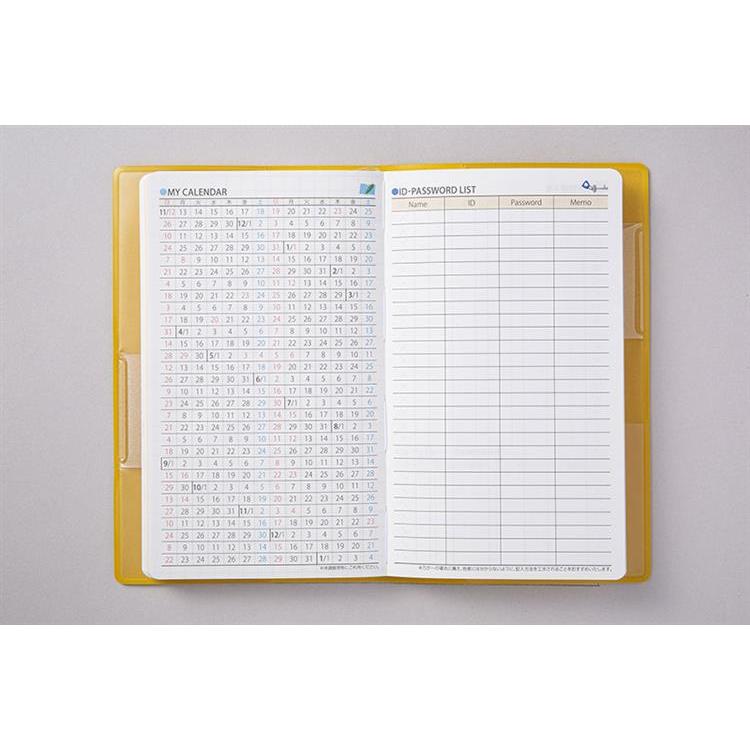 MY CALENDAR
日 月 火 水 木 金 土 日 月 火 水 木 金 土
11/12 13 14 15 16 17 18 19 20 21 22 23 24 25
26 27 28 29 30 12/1 2 3 4 5 6 7 8 9
10 11 12 13 14 15 16 17 18 19 20 21 22 23
24 25 26 27 28 29 30 31 1/1 2 3 4 5 6
7 8 9 10 11 12 13 14 15 16 17 18 19 20
21 22 23 24 25 26 27 28 29 30 31 2/1 2 3
4 5 6 7 8 9 10 11 12 13 14 15 16 17
18 19 20 21 22 23 24 25 26 27 28 29 3/1 2
3 4 5 6 7 8 9 10 11 12 13 14 15 16
17 18 19 20 21 22 23 24 25 26 27 28 29 30
31 4/1 2 3 4 5 6 7 8 9 10 11 12 13
14 15 16 17 18 19 20 21 22 23 24 25 26 27
28 29 30 5/1 2 3 4 5 6 7 8 9 10 11
12 13 14 15 16 17 18 19 20 21 22 23 24 25
26 27 28 29 30 31 6/1 2 3 4 5 6 7 8
9 10 11 12 13 14 15 16 17 18 19 20 21 22
23 24 25 26 27 28 29 30 7/1 2 3 4 5 6
7 8 9 10 11 12 13 14 15 16 17 18 19 20
21 22 23 24 25 26 27 28 29 30 31 8/1 2 3
4 5 6 7 8 9 10 11 12 13 14 15 16 17
18 19 20 21 22 23 24 25 26 27 28 29 30 31
9/1 2 3 4 5 6 7 8 9 10 11 12 13 14
15 16 17 18 19 20 21 22 23 24 25 26 27 28
29 30 10/1 2 3 4 5 6 7 8 9 10 11 12
13 14 15 16 17 18 19 20 21 22 23 24 25 26
27 28 29 30 31 11/1 2 3 4 5 6 7 8 9
10 11 12 13 14 15 16 17 18 19 20 21 22 23
24 25 26 27 28 29 30 12/1 2 3 4 5 6 7
8 9 10 11 12 13 14 15 16 17 18 19 20 21
22 23 24 25 26 27 28 29 30 31 1/1 2 3 4
※体調管理等にご利用ください。
ID・PASSWORD LIST
Name ID Password Memo
※万が一の場合に備え、他者にはわからないように、記入方法を工夫されることをおすすめいたします。